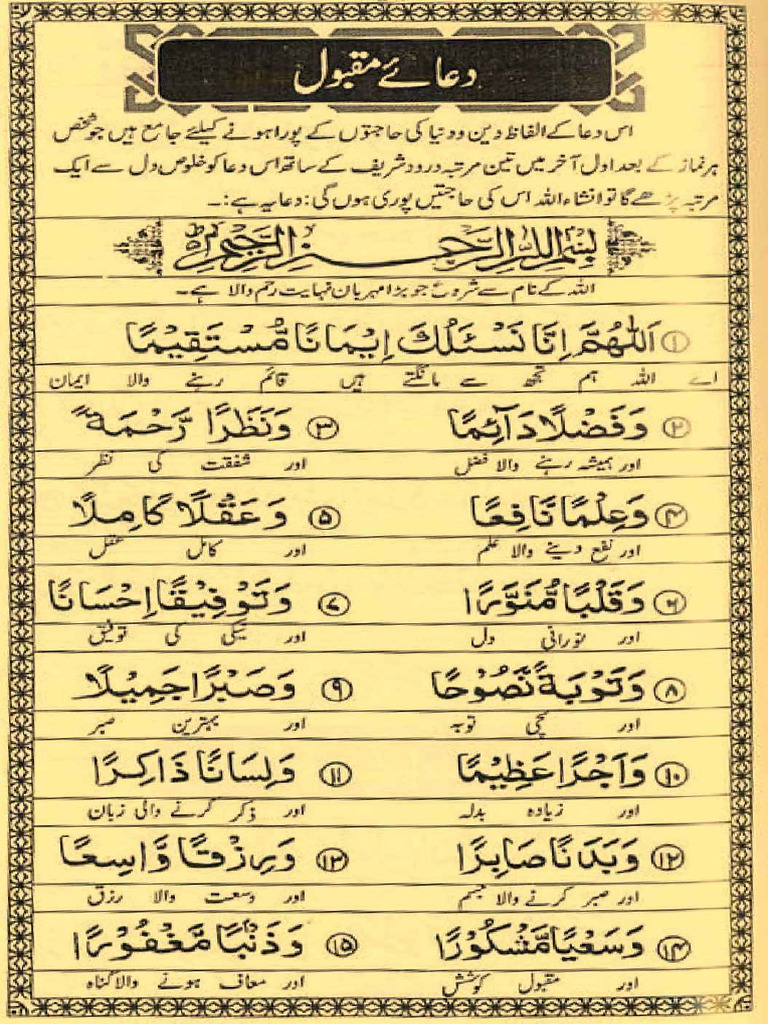 دعائے مقبول
اس دعا کے الفاظ دین و دنیا کی حاجتوں کے پورا ہونے کیلئے جامع ہیں جو شخص
ہر نماز کے بعد اول آخر میں تین مرتبہ درود شریف کے ساتھ اس دعا کو خلوص دل سے ایک
مرتبہ پڑھے گا تو انشاء اللہ اس کی حاجتیں پوری ہوں گی: دعا یہ ہے:۔
بِسْمِ اللهِ الرَّحْمٰنِ الرَّحِيْمِ
اللہ کے نام سے شروع جو بڑا مہربان نہایت رحم والا ہے۔
① اَللّٰهُمَّ اِنَّا نَسْئَلُكَ اِيْمَانًا مُّسْتَقِيْمًا
اے اللہ ہم تجھ سے مانگتے ہیں قائم رہنے والا ایمان
② وَفَضْلًا دَآئِمًا ③ وَنَظَرًا رَّحْمَةً
اور ہمیشہ رہنے والا فضل اور شفقت کی نظر
④ وَعِلْمًا نَّافِعًا ⑤ وَعَقْلًا كَامِلًا
اور نفع دینے والا علم اور کامل عقل
⑥ وَقَلْبًا مُّنَوَّرًا ⑦ وَتَوْفِيْقًا اِحْسَانًا
اور نورانی دل اور نیکی کی توفیق
⑧ وَتَوْبَةً نَّصُوْحًا ⑨ وَصَبْرًا جَمِيْلًا
اور سچی توبہ اور بہترین صبر
⑩ وَاَجْرًا عَظِيْمًا ⑪ وَلِسَانًا ذَاكِرًا
اور زیادہ بدلہ اور ذکر کرنے والی زبان
⑫ وَبَدَنًا صَابِرًا ⑬ وَرِزْقًا وَّاسِعًا
اور صبر کرنے والا جسم اور وسعت والا رزق
⑭ وَسَعْيًا مَّشْكُوْرًا ⑮ وَذَنْبًا مَّغْفُوْرًا
اور مقبول کوشش اور معاف ہونے والا گناہ